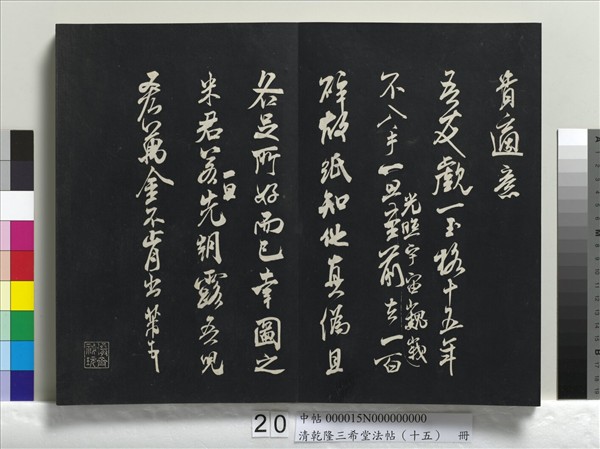 貴適意
吾友覷一玉格十五年
不入手一旦光照宇宙巍峩至前去一百
碎故紙知他真偽且
各足所好而已幸圖之
米君若一旦先朝露吾兒
吝萬金不肯出芾頓首
20
中帖 000015N000000000
清乾隆三希堂法帖(十五) 冊